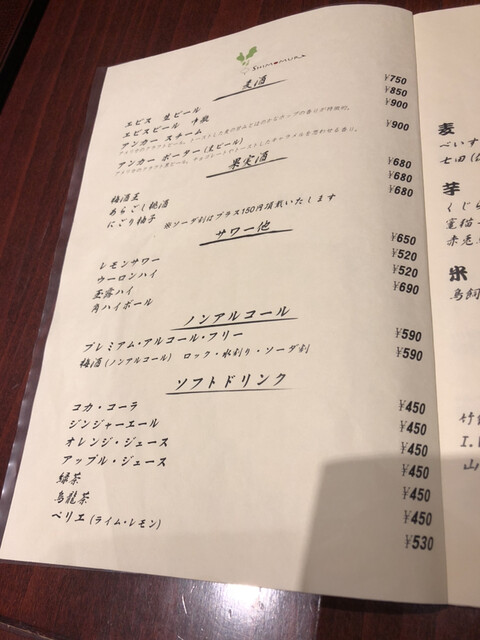 Shimomura
麦酒
エビス 生ビール ¥750
エビスビール 中瓶 ¥850
アンカー スチーム ¥900
アンカー ポーター (黒ビール) ¥900
果実酒
梅酒王 ¥680
あらごし桃酒 ¥680
にごり柚子 ¥680
※ソーダ割はプラス150円頂戴いたします
サワー他
レモンサワー ¥650
ウーロンハイ ¥520
玉露ハイ ¥520
角ハイボール ¥690
ノンアルコール
プレミアム・アルコール・フリー ¥590
梅酒(ノンアルコール) ロック・水割り・ソーダ割 ¥590
ソフトドリンク
コカ・コーラ ¥450
ジンジャーエール ¥450
オレンジ・ジュース ¥450
アップル・ジュース ¥450
緑茶 ¥450
烏龍茶 ¥450
ペリエ(ライム・レモン) ¥530
麦
べいす
七田
芋
くじら
寛猫
赤兎
米
鳥飼
竹
I.W
山